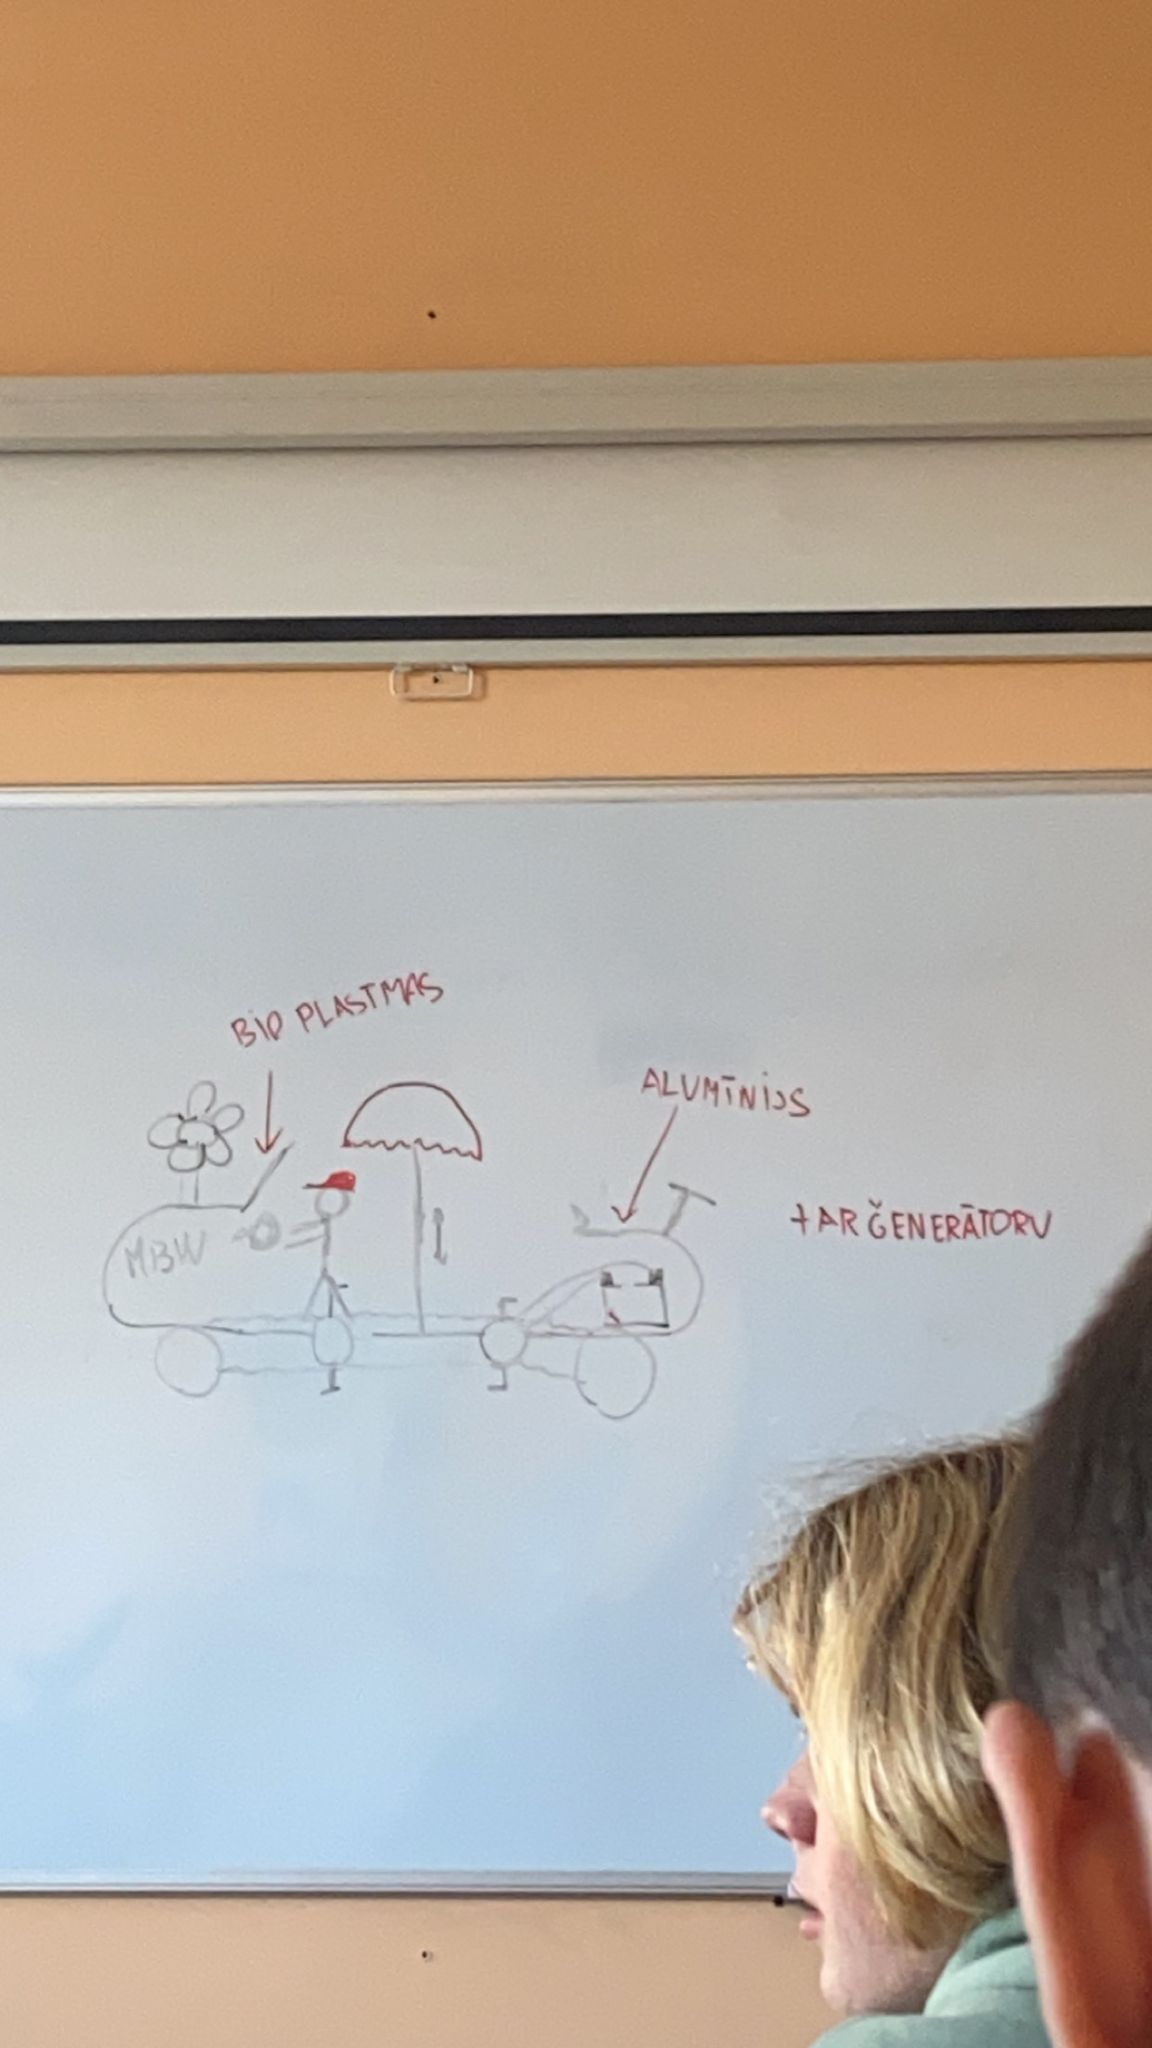 BIO PLASTMAS
ALUMĪNIJS
MBW
+ AR ĢENERĀTORU